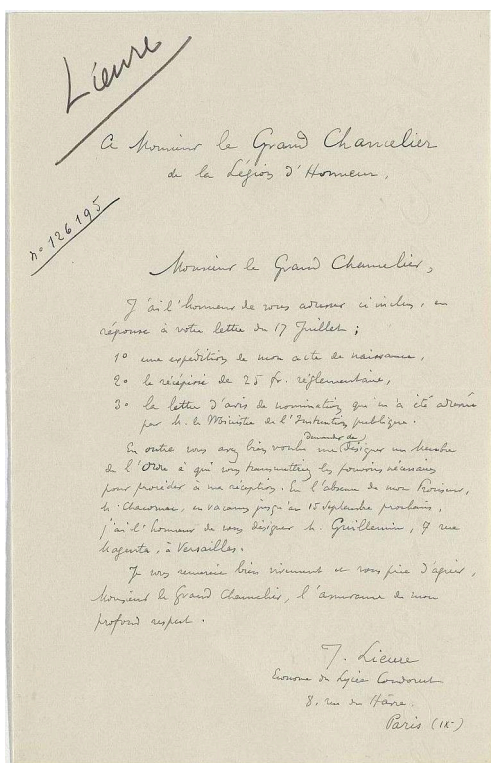 Lieure
A Monsieur le Grand Chancelier
de la Légion d'Honneur,
n° 126195
Monsieur le Grand Chancelier,
J'ai l'honneur de vous adresser ci inclus, en
réponse à votre lettre du 17 Juillet ;
1° une expédition de mon acte de naissance,
2° le récépissé de 25 fr. réglementaire,
3° la lettre d'avis de nomination qui m'a été adressée
par M. le Ministre de l'Instruction publique.
En outre vous avez bien voulu me demander de désigner un Membre
de l'Ordre à qui vous transmettrez les pouvoirs nécessaires
pour procéder à ma réception. En l'absence de mon Proviseur,
M. Chacornac, en vacances jusqu'au 15 Septembre prochain,
j'ai l'honneur de vous désigner M. Guillemin, 9 rue
Magenta, à Versailles.
Je vous remercie bien vivement et vous prie d'agréer,
Monsieur le Grand Chancelier, l'assurance de mon
profond respect.
J. Lieure
Econome du Lycée Condorcet
8, rue du Hâvre.
Paris (IXe)